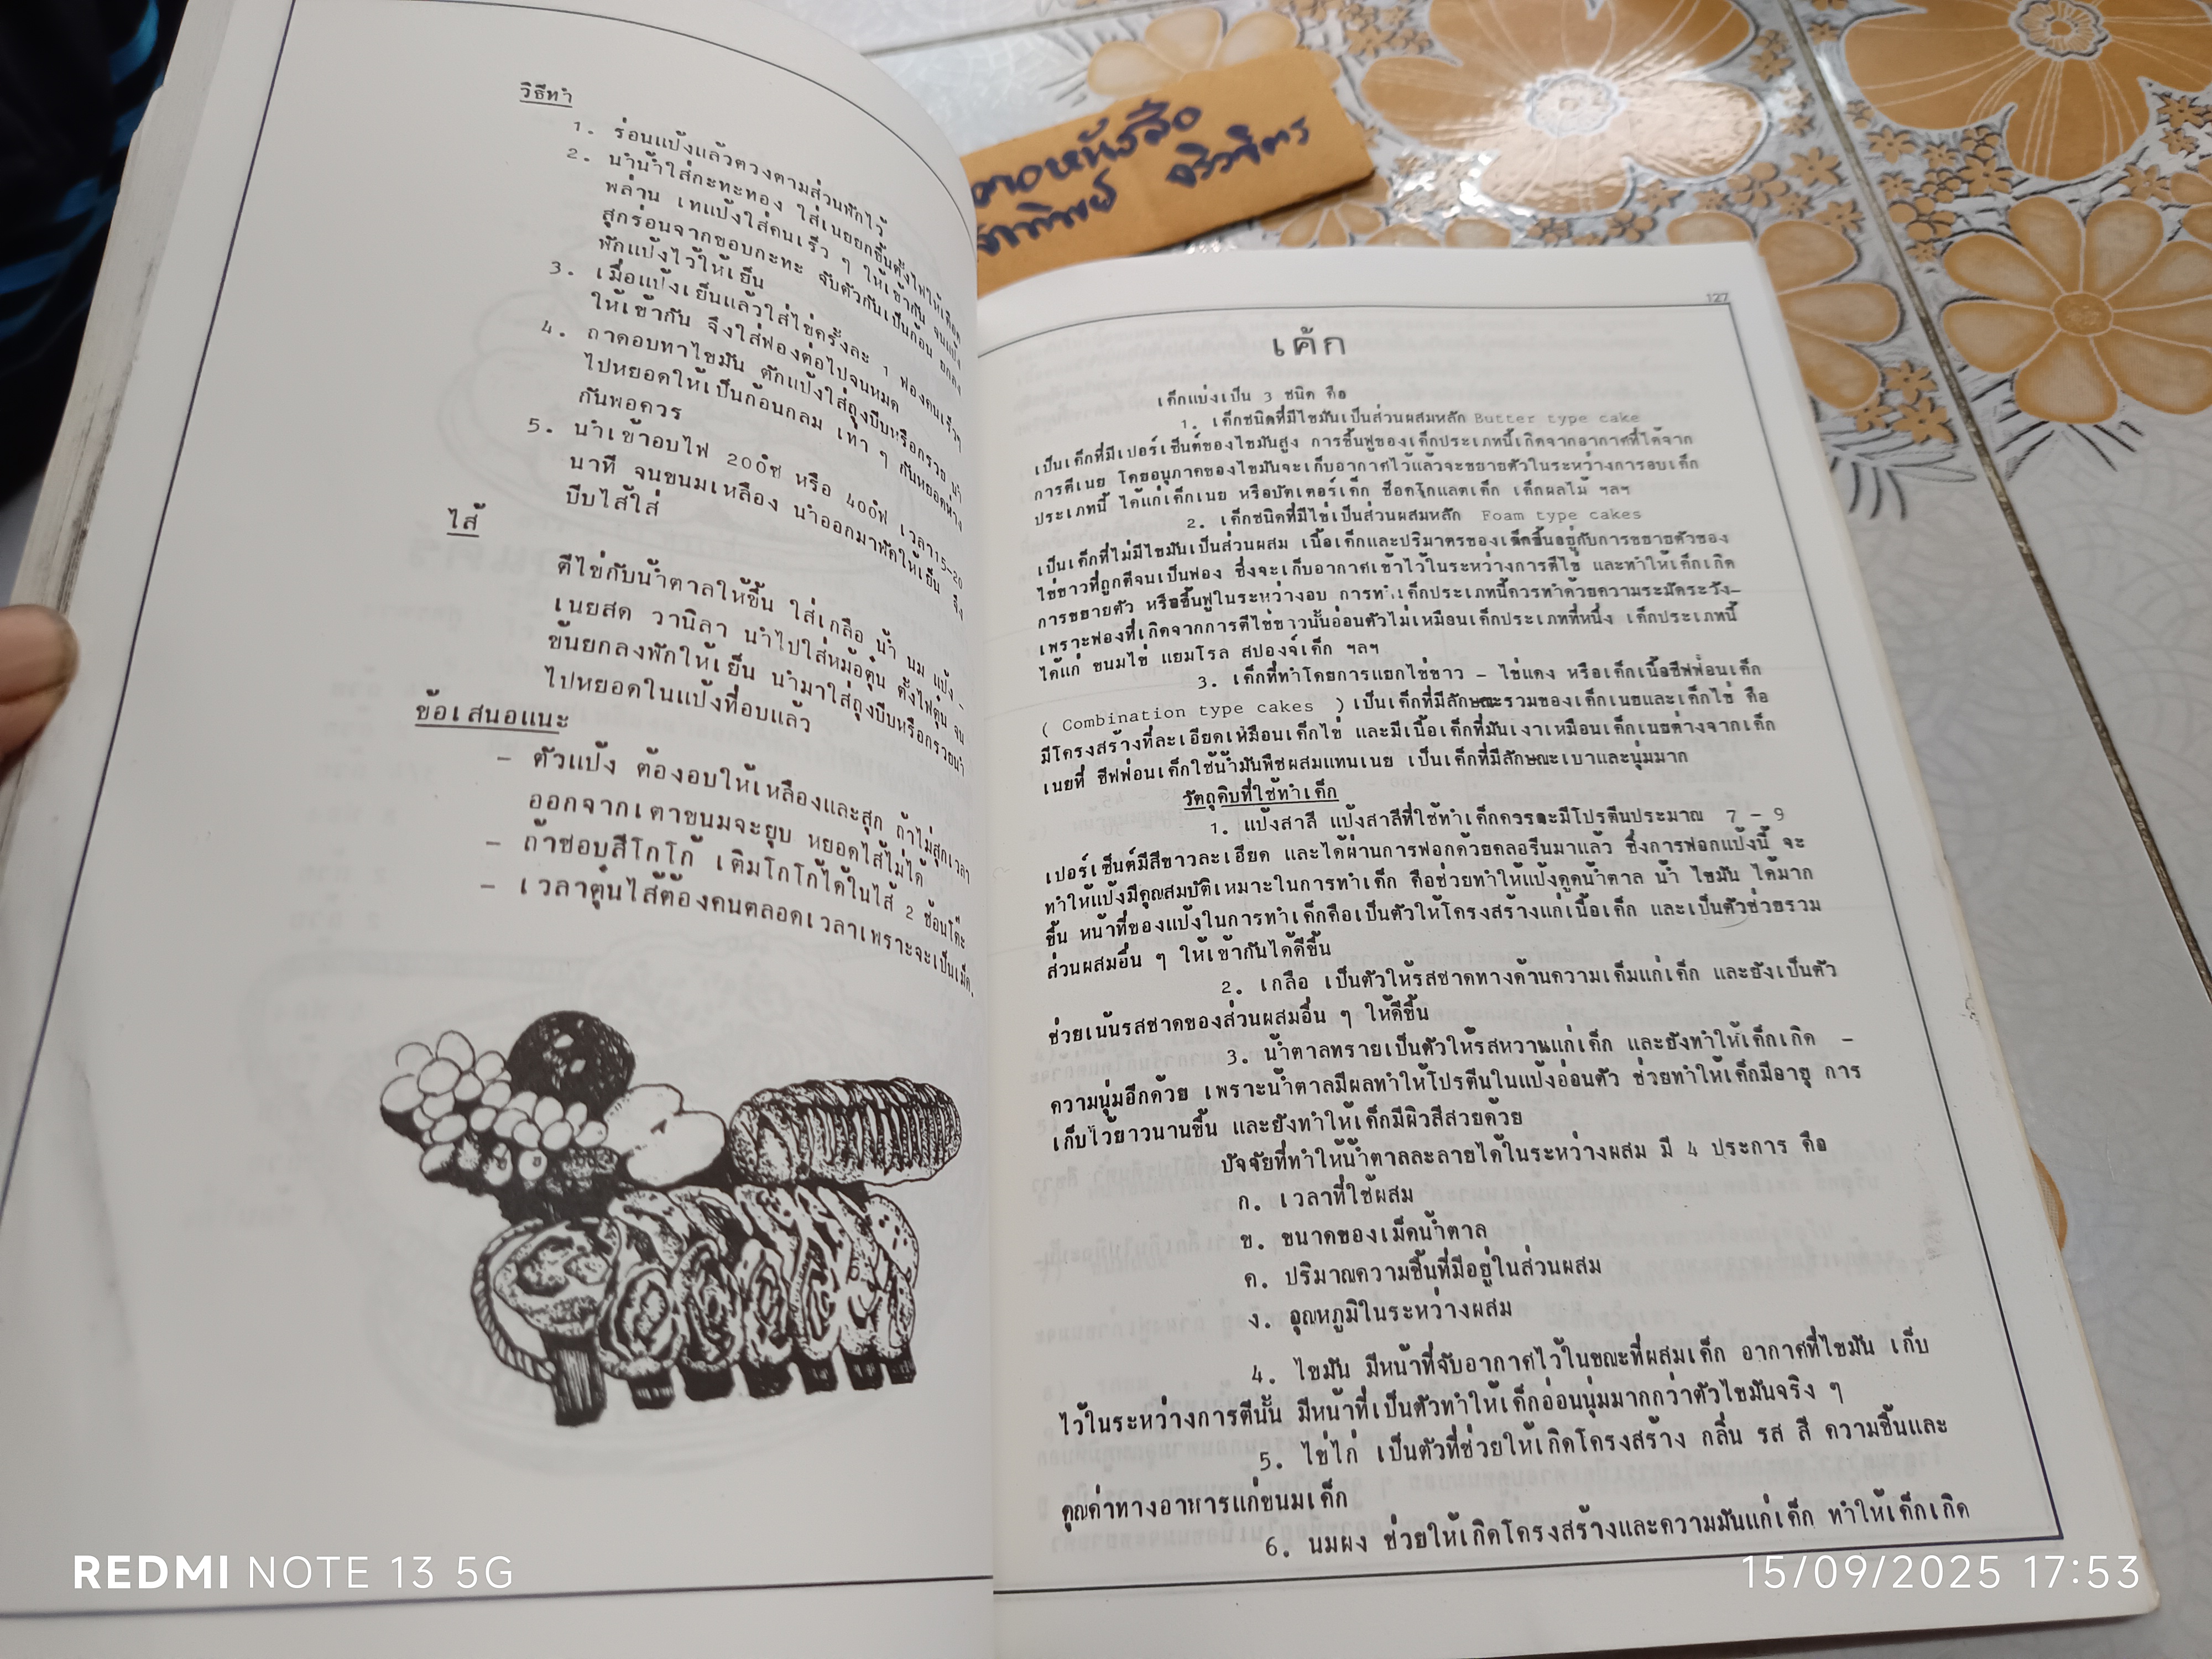 วิธีทำ
1. ร่อนแป้งแล้วตวงตามส่วนพักไว้
2. นำน้ำใส่กะทะทอง ใส่เนยยกขึ้นตั้งไฟให้เดือด
พล่าน เทแป้งใส่คนเร็ว ๆ ให้เข้ากัน จนแป้ง
สุกร่อนจากขอบกะทะ จับตัวกันเป็นก้อน ยกลง
พักแป้งไว้ให้เย็น
3. เมื่อแป้งเย็นแล้วใส่ไข่ครั้งละ 1 ฟองคนเร็วๆ
ให้เข้ากัน จึงใส่ฟองต่อไปจนหมด
4. ถาดอบทาไขมัน ตักแป้งใส่ถุงบีบหรือกรวย นำ
ไปหยอดให้เป็นก้อนกลม เท่า ๆ กันหยอดห่าง
กันพอควร
5. นำเข้าอบไฟ 200°ซ หรือ 400°ฟ เวลา15-20
นาที จนขนมเหลือง นำออกมาพักให้เย็น จึง
บีบไส้ใส่
ไส้
ตีไข่กับน้ำตาลให้ขึ้น ใส่เกลือ น้ำ นม แป้ง -
เนยสด วานิลา นำไปใส่หม้อตุ๋น ตั้งไฟตุ๋น จน
ข้นยกลงพักให้เย็น นำมาใส่ถุงบีบหรือกรวยนำ
ไปหยอดในแป้งที่อบแล้ว
ข้อเสนอแนะ
- ตัวแป้ง ต้องอบให้เหลืองและสุก ถ้าไม่สุกเวลา
ออกจากเตาขนมจะยุบ หยอดไส้ไม่ได้
- ถ้าชอบสีโกโก้ เติมโกโก้ได้ในไส้ 2 ช้อนโต๊ะ
- เวลาตุ๋นไส้ต้องคนตลอดเวลาเพราะจะเป็นเม็ด.
127
เค้ก
เค้กแบ่งเป็น 3 ชนิด คือ
1. เค้กชนิดที่มีไขมันเป็นส่วนผสมหลัก Butter type cake
เป็นเค้กที่มีเปอร์เซ็นต์ของไขมันสูง การขึ้นฟูของเค้กประเภทนี้เกิดจากอากาศที่ได้จาก
การตีเนย โดยอนุภาคของไขมันจะเก็บอากาศไว้แล้วจะขยายตัวในระหว่างการอบเค้ก
ประเภทนี้ ได้แก่เค้กเนย หรือบัตเตอร์เค้ก ช็อคโกแลตเค้ก เค้กผลไม้ ฯลฯ
2. เค้กชนิดที่มีไข่เป็นส่วนผสมหลัก Foam type cakes
เป็นเค้กที่ไม่มีไขมันเป็นส่วนผสม เนื้อเค้กและปริมาตรของเค้กขึ้นอยู่กับการขยายตัวของ
ไข่ขาวที่ถูกตีจนเป็นฟอง ซึ่งจะเก็บอากาศเข้าไว้ในระหว่างการตีไข่ และทำให้เค้กเกิด
การขยายตัว หรือขึ้นฟูในระหว่างอบ การทำเค้กประเภทนี้ควรทำด้วยความระมัดระวัง-
เพราะฟองที่เกิดจากการตีไข่ขาวนั้นอ่อนตัวไม่เหมือนเค้กประเภทที่หนึ่ง เค้กประเภทนี้
ได้แก่ ขนมไข่ แยมโรล สปองจ์เค้ก ฯลฯ
3. เค้กที่ทำโดยการแยกไข่ขาว - ไข่แดง หรือเค้กเนื้อชีฟฟ่อนเค้ก
( Combination type cakes ) เป็นเค้กที่มีลักษณะรวมของเค้กเนยและเค้กไข่ คือ
มีโครงสร้างที่ละเอียดเหมือนเค้กไข่ และมีเนื้อเค้กที่มันเงาเหมือนเค้กเนยต่างจากเค้ก
เนยที่ ชีฟฟ่อนเค้กใช้น้ำมันพืชผสมแทนเนย เป็นเค้กที่มีลักษณะเบาและนุ่มมาก
วัตถุดิบที่ใช้ทำเค้ก
1. แป้งสาลี แป้งสาลีที่ใช้ทำเค้กควรจะมีโปรตีนประมาณ 7 - 9
เปอร์เซ็นต์มีสีขาวละเอียด และได้ผ่านการฟอกด้วยคลอรีนมาแล้ว ซึ่งการฟอกแป้งนี้ จะ
ทำให้แป้งมีคุณสมบัติเหมาะในการทำเค้ก คือช่วยทำให้แป้งดูดน้ำตาล น้ำ ไขมัน ได้มาก
ขึ้น หน้าที่ของแป้งในการทำเค้กคือเป็นตัวให้โครงสร้างแก่เนื้อเค้ก และเป็นตัวช่วยรวม
ส่วนผสมอื่น ๆ ให้เข้ากันได้ดีขึ้น
2. เกลือ เป็นตัวให้รสชาดทางด้านความเค็มแก่เค้ก และยังเป็นตัว
ช่วยเน้นรสชาดของส่วนผสมอื่น ๆ ให้ดีขึ้น
3. น้ำตาลทรายเป็นตัวให้รสหวานแก่เค้ก และยังทำให้เค้กเกิด -
ความนุ่มอีกด้วย เพราะน้ำตาลมีผลทำให้โปรตีนในแป้งอ่อนตัว ช่วยทำให้เค้กมีอายุ การ
เก็บไว้ยาวนานขึ้น และยังทำให้เค้กมีผิวสีสวยด้วย
ปัจจัยที่ทำให้น้ำตาลละลายได้ในระหว่างผสม มี 4 ประการ คือ
ก. เวลาที่ใช้ผสม
ข. ขนาดของเม็ดน้ำตาล
ค. ปริมาณความชื้นที่มีอยู่ในส่วนผสม
ง. อุณหภูมิในระหว่างผสม
4. ไขมัน มีหน้าที่จับอากาศไว้ในขณะที่ผสมเค้ก อากาศที่ไขมัน เก็บ
ไว้ในระหว่างการตีนั้น มีหน้าที่เป็นตัวทำให้เค้กอ่อนนุ่มมากกว่าตัวไขมันจริง ๆ
5. ไข่ไก่ เป็นตัวที่ช่วยให้เกิดโครงสร้าง กลิ่น รส สี ความชื้นและ
คุณค่าทางอาหารแก่ขนมเค้ก
6. นมผง ช่วยให้เกิดโครงสร้างและความมันแก่เค้ก ทำให้เค้กเกิด
REDMI NOTE 13 5G
15/09/2025 17:53